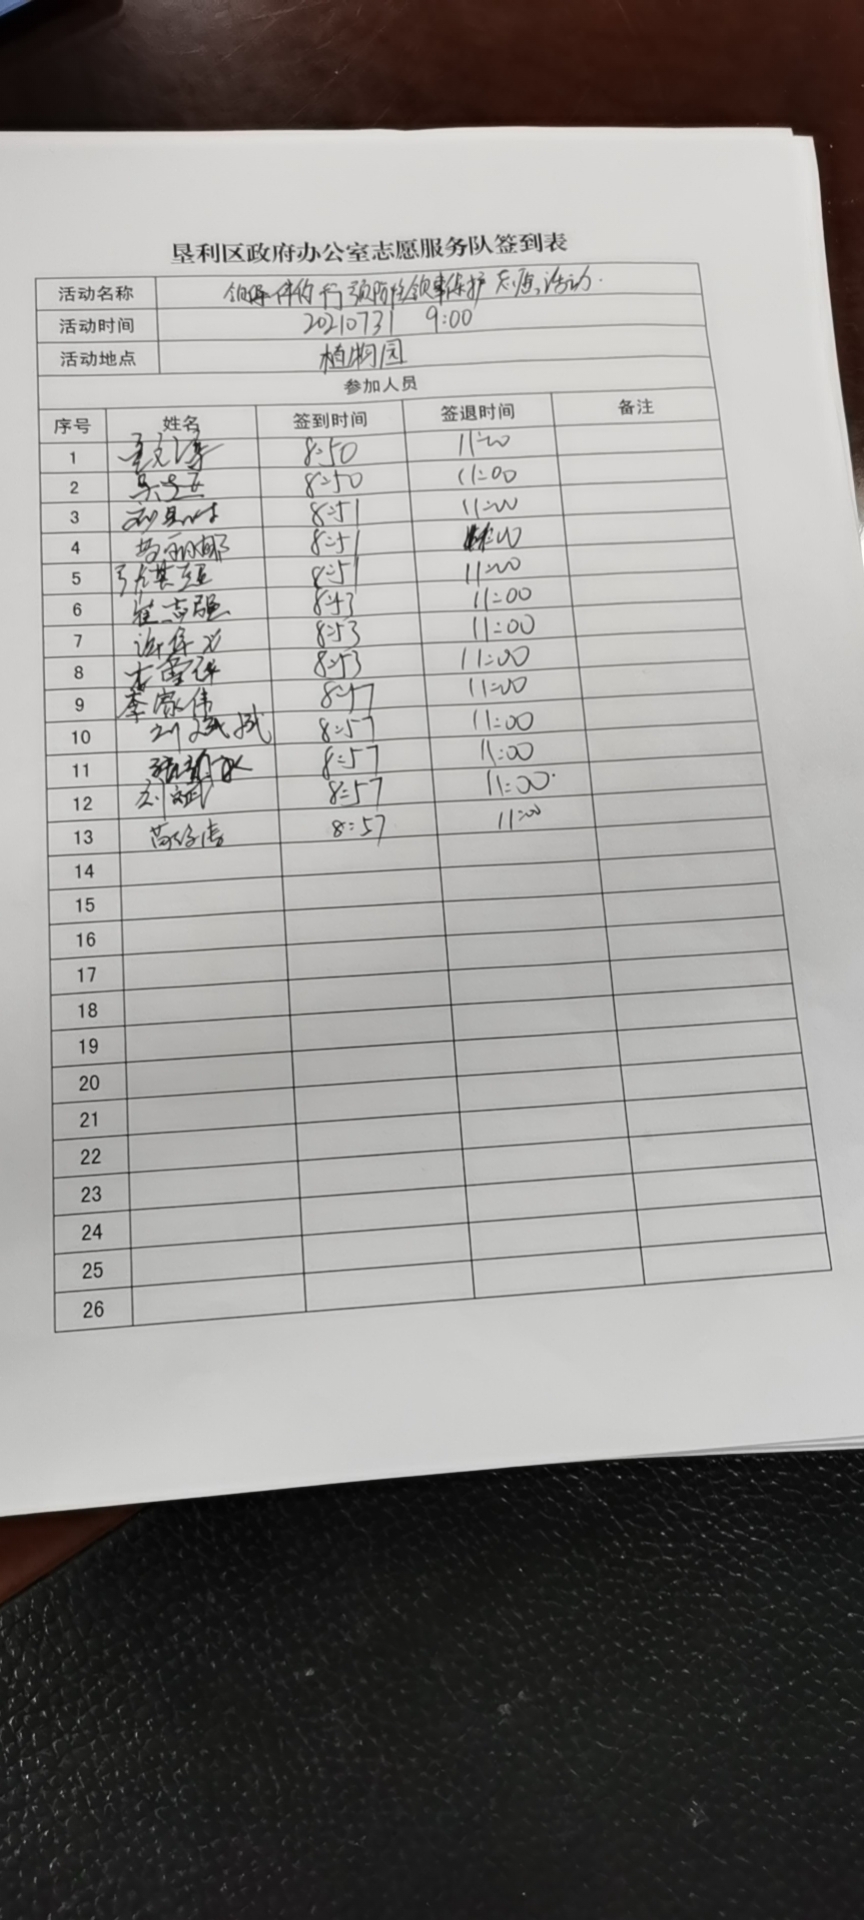 垦利区政府办公室志愿服务队签到表
活动名称 领保伴你行 预防性领事保护志愿活动.
活动时间 20210731 9:00
活动地点 植物园
参加人员
序号 姓名 签到时间 签退时间 备注
1 8:50 11:00
2 8:50 11:00
3 8:51 11:00
4 8:51 11:00
5 8:51 11:00
6 崔志强 8:53 11:00
7 8:53 11:00
8 8:53 11:00
9 李家伟 8:57 11:00
10 8:57 11:00
11 8:57 11:00
12 刘斌 8:57 11:00
13 8:57 11:00
14
15
16
17
18
19
20
21
22
23
24
25
26